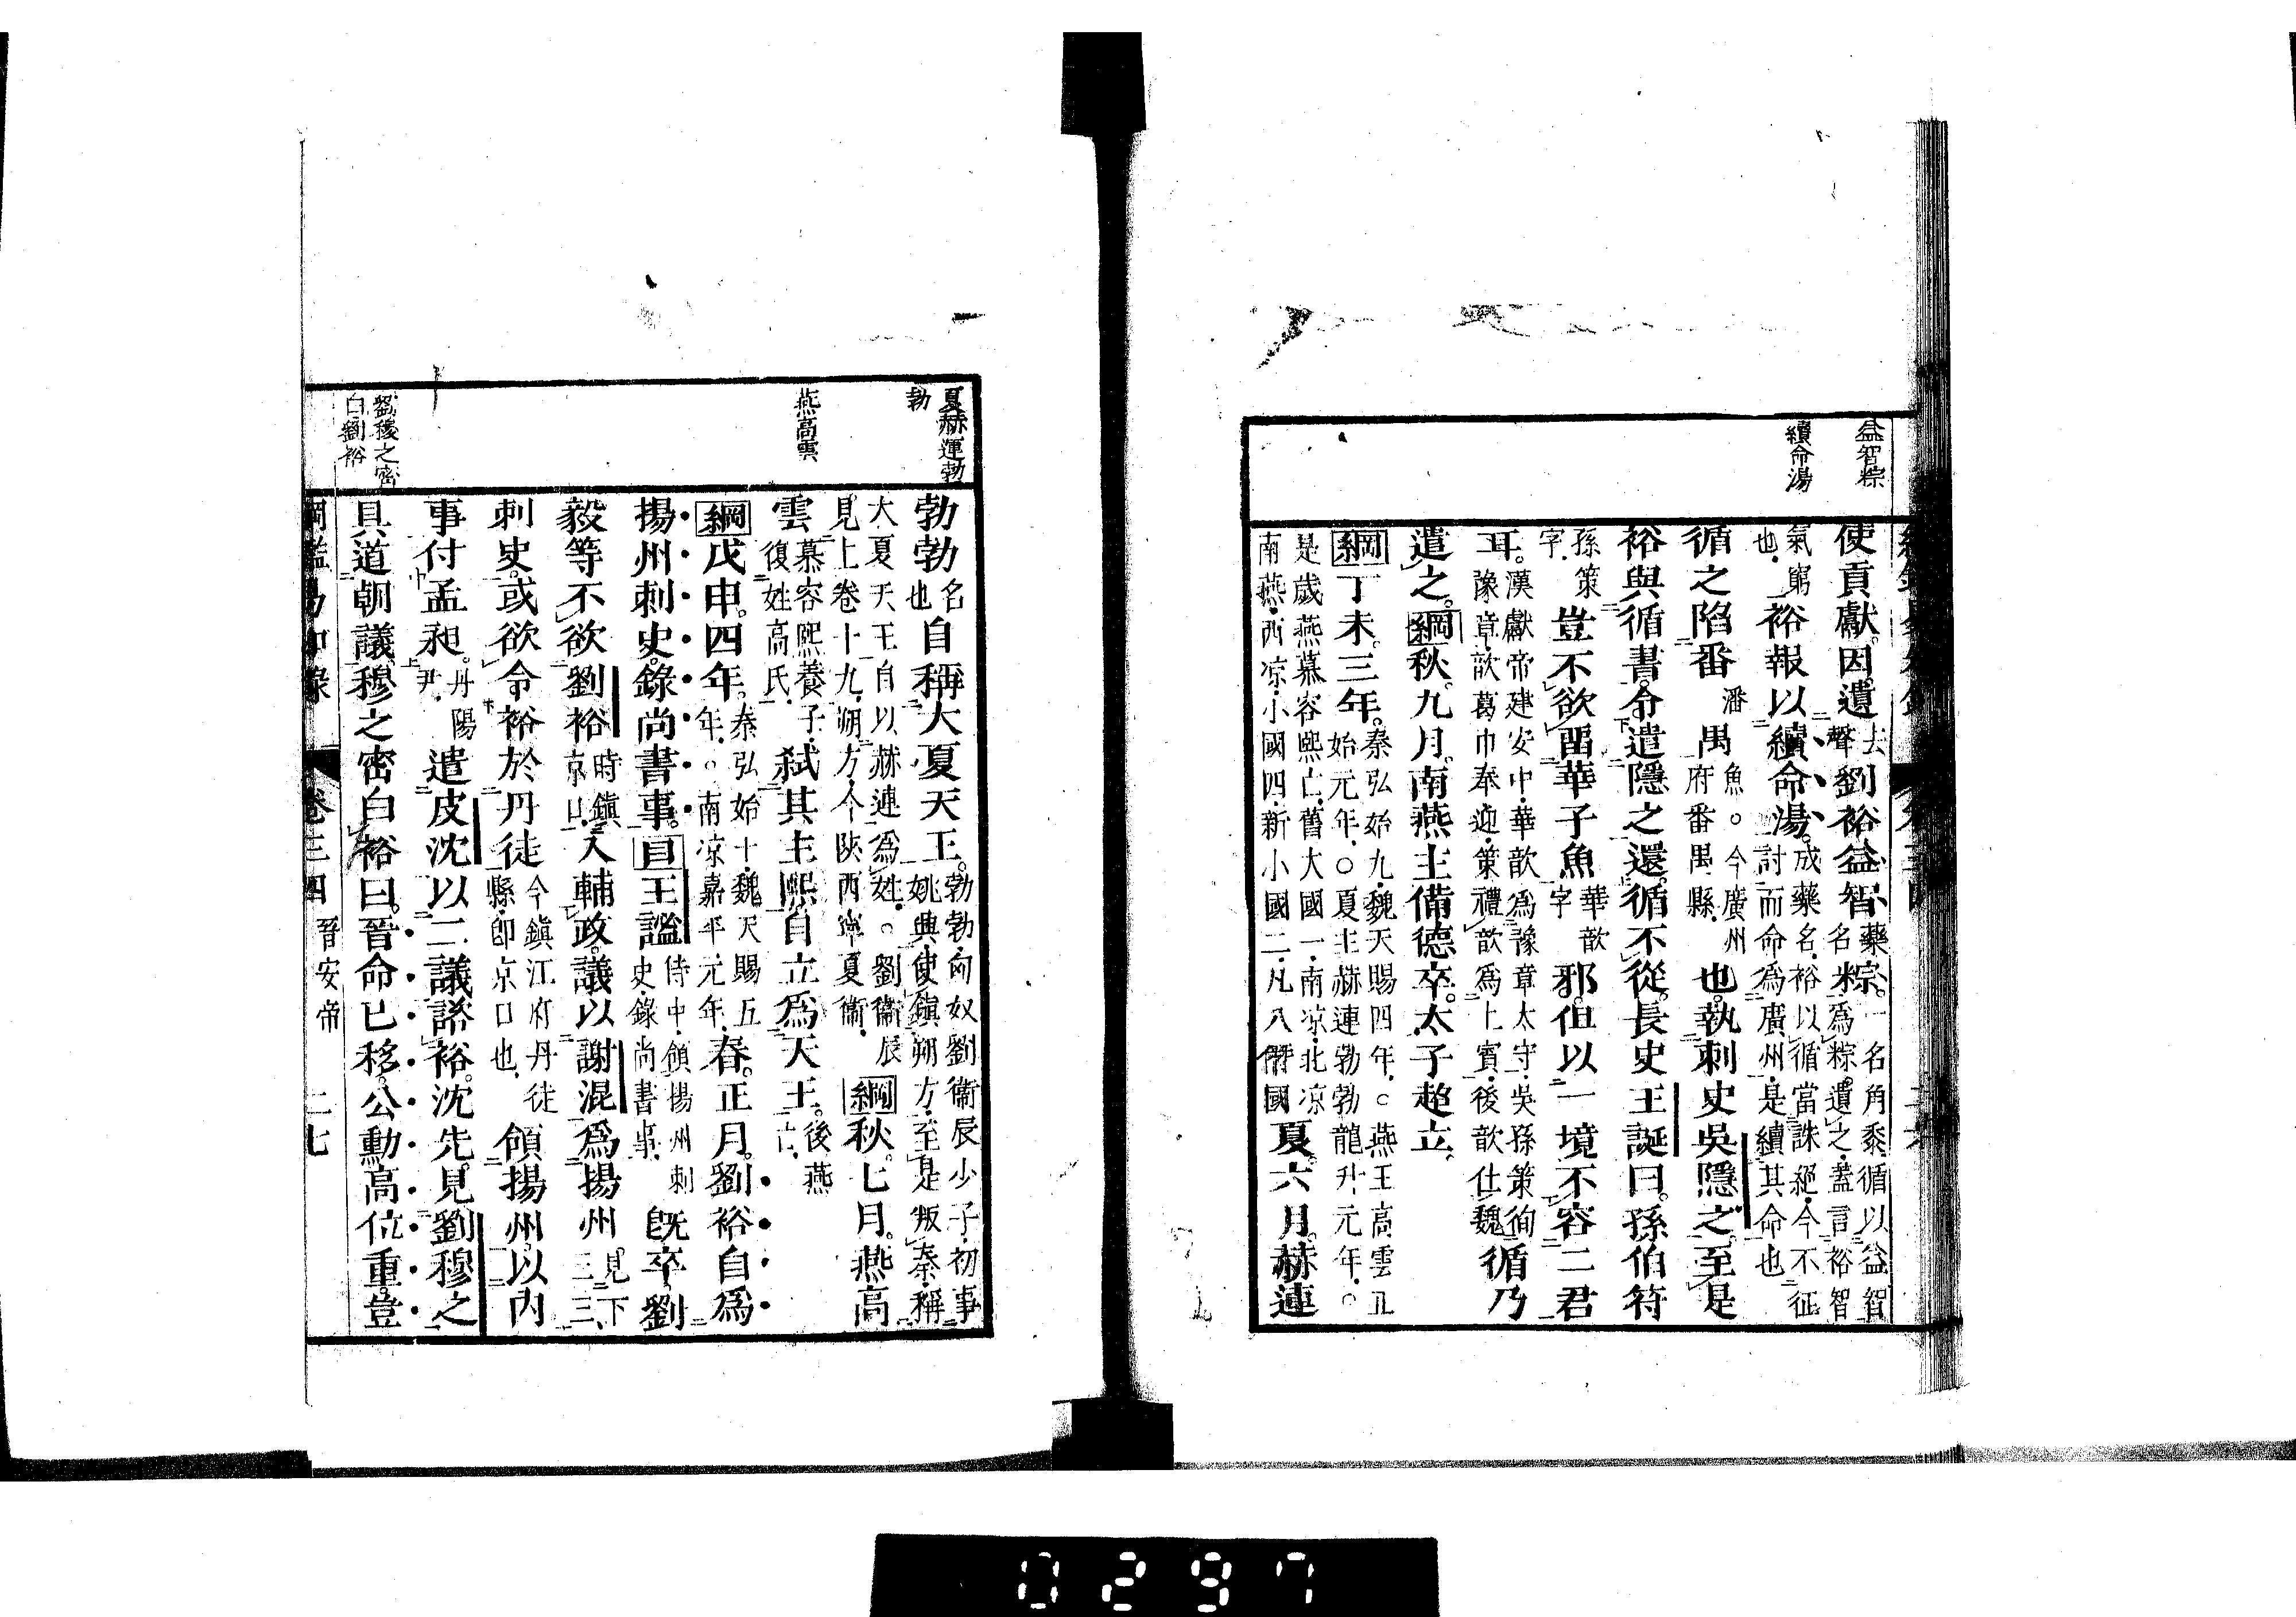 益智粽
續命湯
使貢獻。因遺去聲劉裕益智藥名粽。一名角黍循以益智米爲粽遺之蓋言裕智
氣窮也裕報以續命湯。成藥名裕以循當誅絕今不征討而命爲廣州是續其命也
循之陷番潘禺魚。今廣州府番禺縣也。執刺史吳隱之。至是
裕與循書。令遣隱之還。循不從。長史王誕曰。孫伯符
孫策字豈不欲留華子魚華歆字邪。但以一境不容二君
耳。漢獻帝建安中華歆爲豫章太守吳孫策徇豫章歆葛巾奉迎策禮歆爲上賓後歆仕魏循乃
遣之。綱秋。九月。南燕主備德卒。太子超立。
綱丁未。三年。秦弘始九魏天賜四年。燕王高雲正始元年。夏主赫連勃勃龍升元年。
是歲燕慕容熙亡舊大國一南涼北涼南燕西涼小國四新小國二凡八僭國夏。六月。赫連
夏赫連勃勃
燕高雲
劉穆之密白劉裕
勃勃名也自稱大夏天王。勃勃匈奴劉衞辰少子初事姚興使鎮朔方至是叛秦稱
大夏天王自以赫連爲姓。劉衞辰見上卷十九朔方今陝西寧夏衞綱秋。七月。燕高
雲慕容熙養子復姓高氏弑其主熙自立爲天王。後燕亡
綱戊申。四年。秦弘始十魏天賜五年。南涼嘉平元年春。正月。劉裕自爲
揚州刺史。錄尚書事。目王謐侍中領揚州刺史錄尚書事旣卒。劉
毅等不欲劉裕時鎮京口入輔政。議以謝混爲揚州見下三三
刺史。或欲令裕於丹徒今鎮江府丹徒縣卽京口也領揚州。以內
事付孟昶。丹陽尹遣皮沈以二議諮裕。沈先見劉穆之
具道朝議。穆之密白裕曰。晉命已移。公勳高位重。豈
卷三四 晉安帝 二七